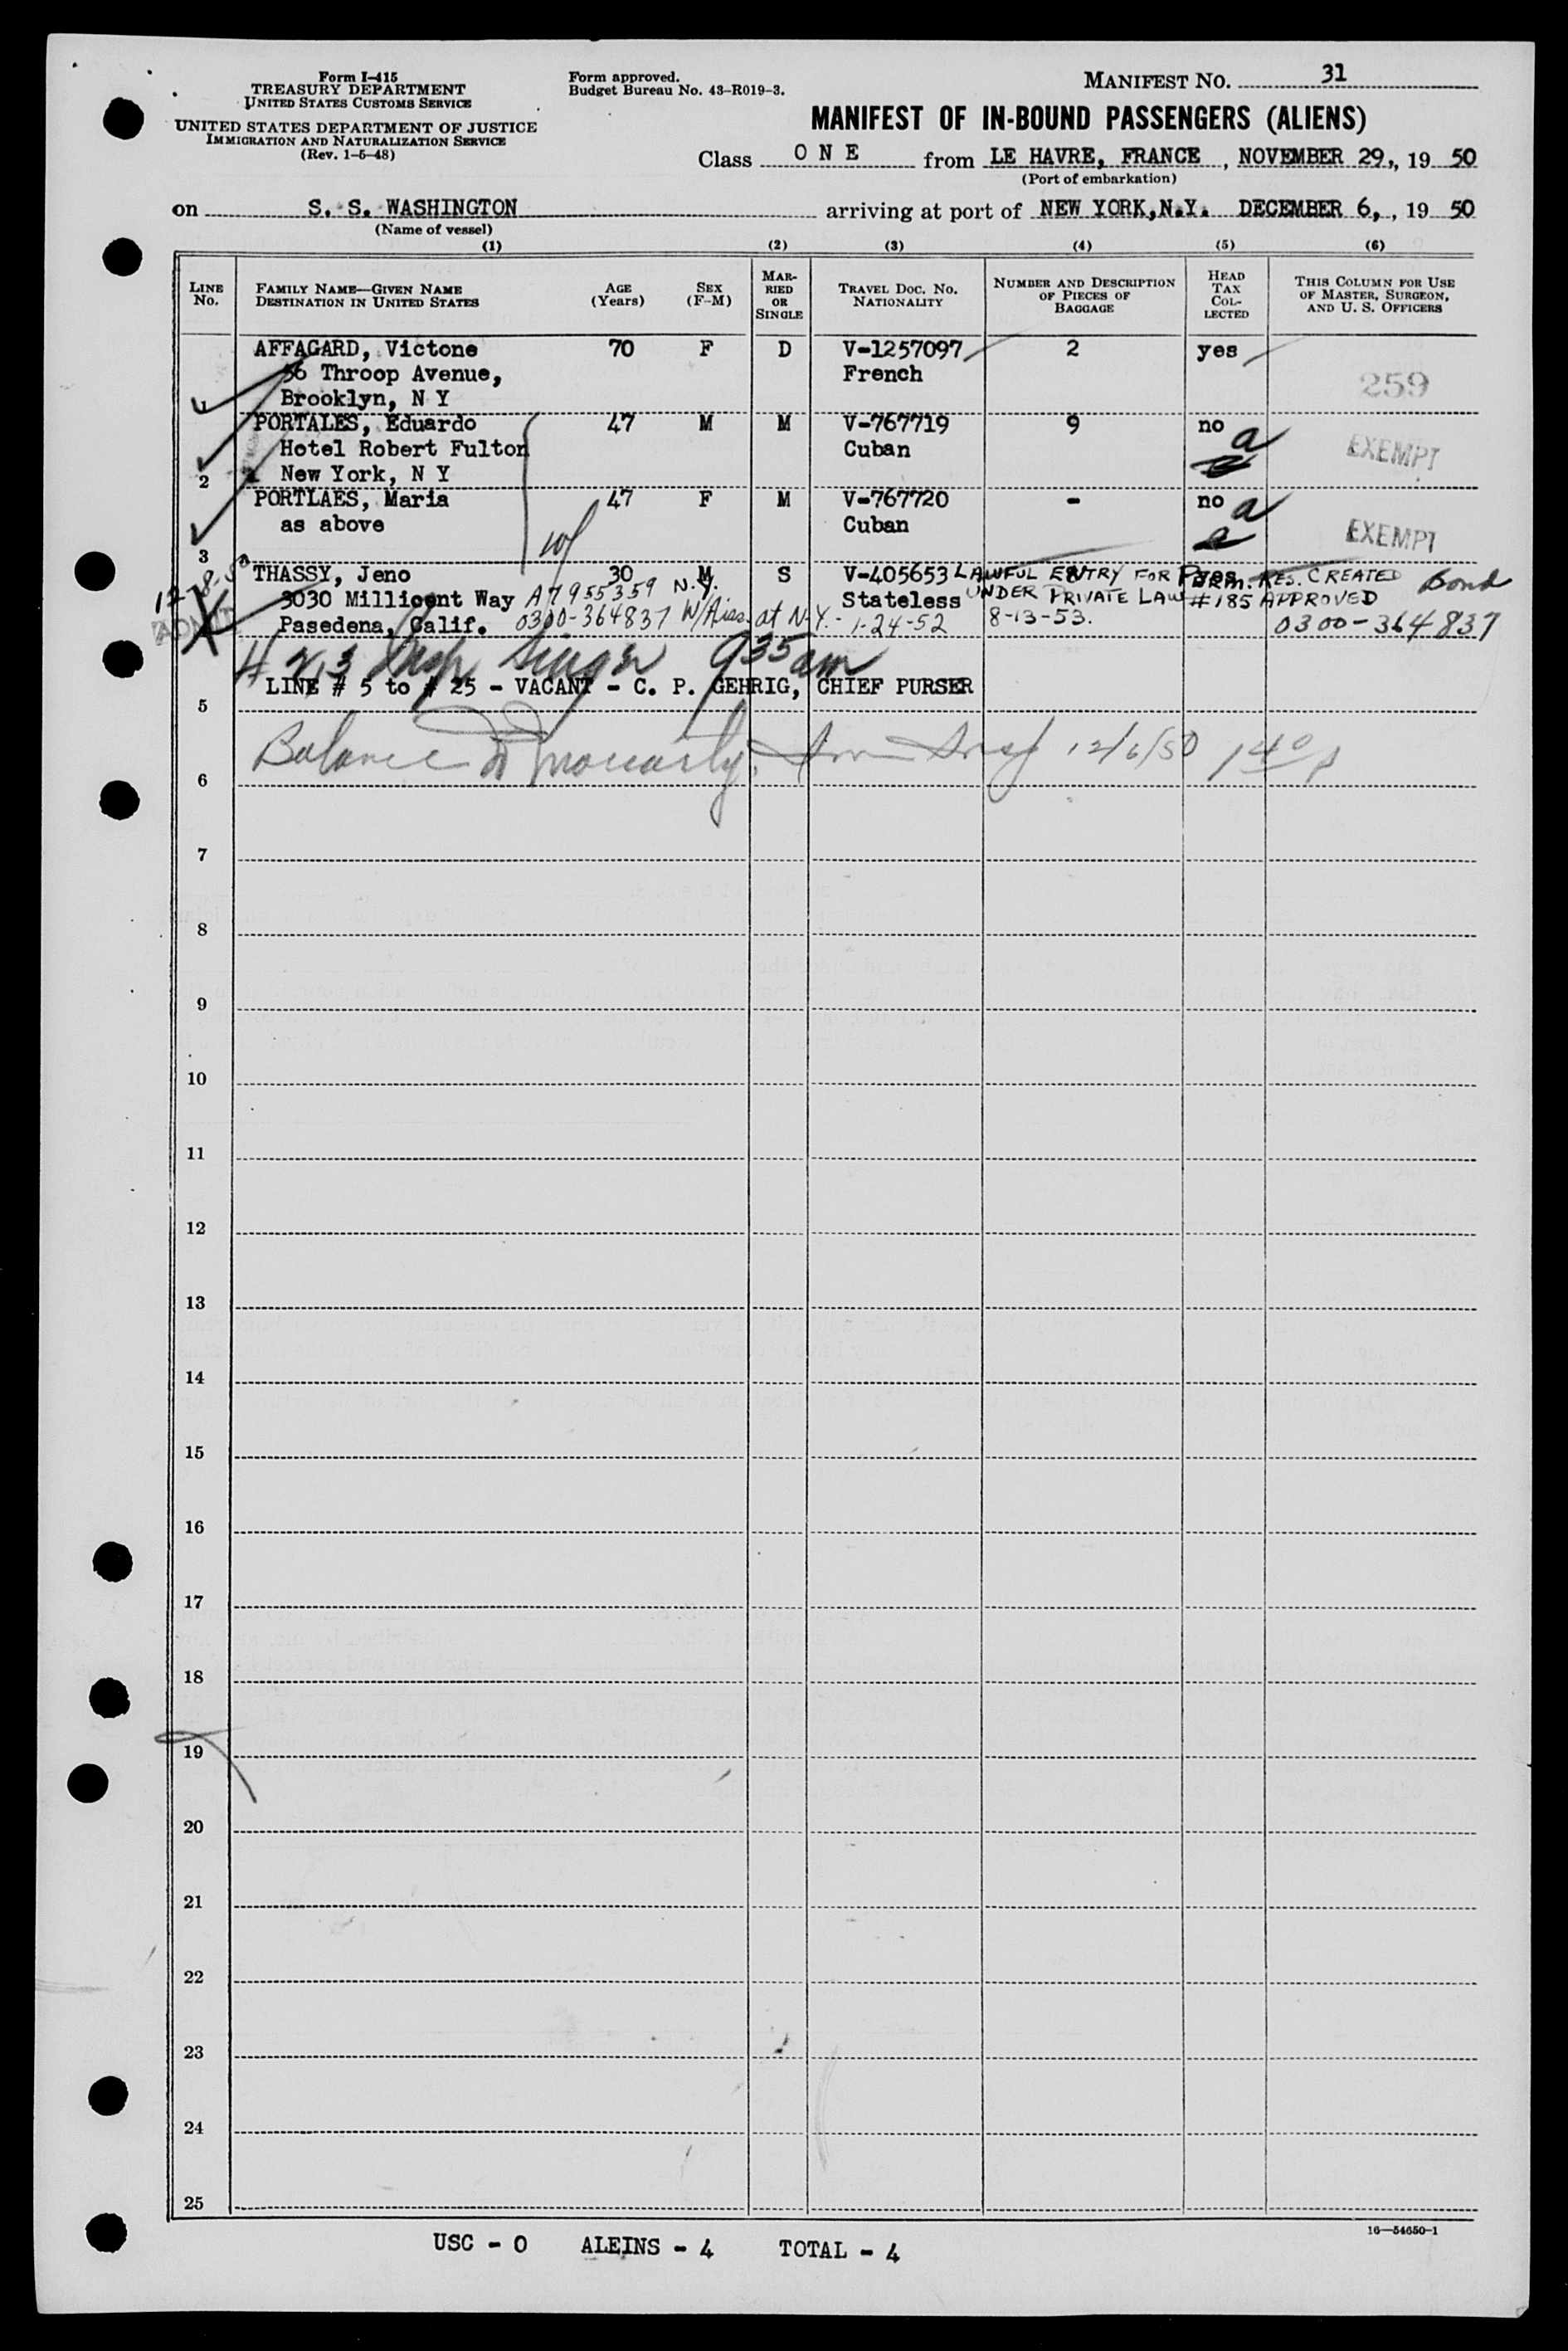 Form I-415
TREASURY DEPARTMENT
UNITED STATES CUSTOMS SERVICE
UNITED STATES DEPARTMENT OF JUSTICE
IMMIGRATION AND NATURALIZATION SERVICE
(Rev. 1-5-48)
Form approved.
Budget Bureau No. 43-R019-3.
MANIFEST NO. 31
MANIFEST OF IN-BOUND PASSENGERS (ALIENS)
Class ONE from LE HAVRE, FRANCE, NOVEMBER 29, 19 50
(Port of embarkation)
on S. S. WASHINGTON arriving at port of NEW YORK, N.Y. DECEMBER 6, 19 50
(Name of vessel)
(1) (2) (3) (4) (5) (6)
LINE No. FAMILY NAME—GIVEN NAME DESTINATION IN UNITED STATES AGE (Years) SEX (F-M) MARRIED OR SINGLE TRAVEL DOC. NO. NATIONALITY NUMBER AND DESCRIPTION OF PIECES OF BAGGAGE HEAD TAX COLLECTED THIS COLUMN FOR USE OF MASTER, SURGEON, AND U. S. OFFICERS
AFFAGARD, Victone 70 F D V-1257097 2 yes
56 Throop Avenue, French 259
1 Brooklyn, N Y
PORTALES, Eduardo 47 M M V-767719 9 no a
Hotel Robert Fulton Cuban EXEMPT
2 New York, N Y
PORTLAES, Maria 47 F M V-767720 - no a
as above Cuban EXEMPT
3
12-8-50 THASSY, Jeno 30 M S V-405653 LAWFUL ENTRY FOR PERM. RES. CREATED Bond
3030 Millicent Way A7955359 N.Y. Stateless UNDER PRIVATE LAW #185 APPROVED
ADMIT Pasedena, Calif. 0300-364837 at N.Y. - 1-24-52 8-13-53. 0300-364837
# 2,3 Insp 935 am
LINE # 5 to # 25 - VACANT - C. P. GEHRIG, CHIEF PURSER
5
Balance Moriarty, Imm Insp 12/6/50 140 p
6
7
8
9
10
11
12
13
14
15
16
17
18
19
20
21
22
23
24
25
16—54650-1
USC - 0 ALEINS - 4 TOTAL - 4